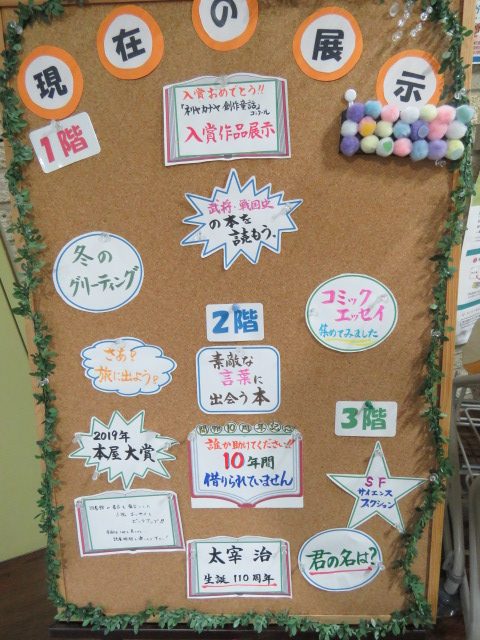 現在の展示
1階
入賞おめでとう!!
創作童話
入賞作品展示
武将・戦国史
の本を
読もう。
冬の
グリーティング
コミック
エッセイ
集めてみました
2階
さあ?
旅に出よう?
素敵な
言葉に
出会う本
3階
2019年
本屋大賞
開館10周年記念
誰か助けてください!!
10年間
借りられていません
SF
サイエンス
フクション
太宰 治
生誕110周年
君の名は?